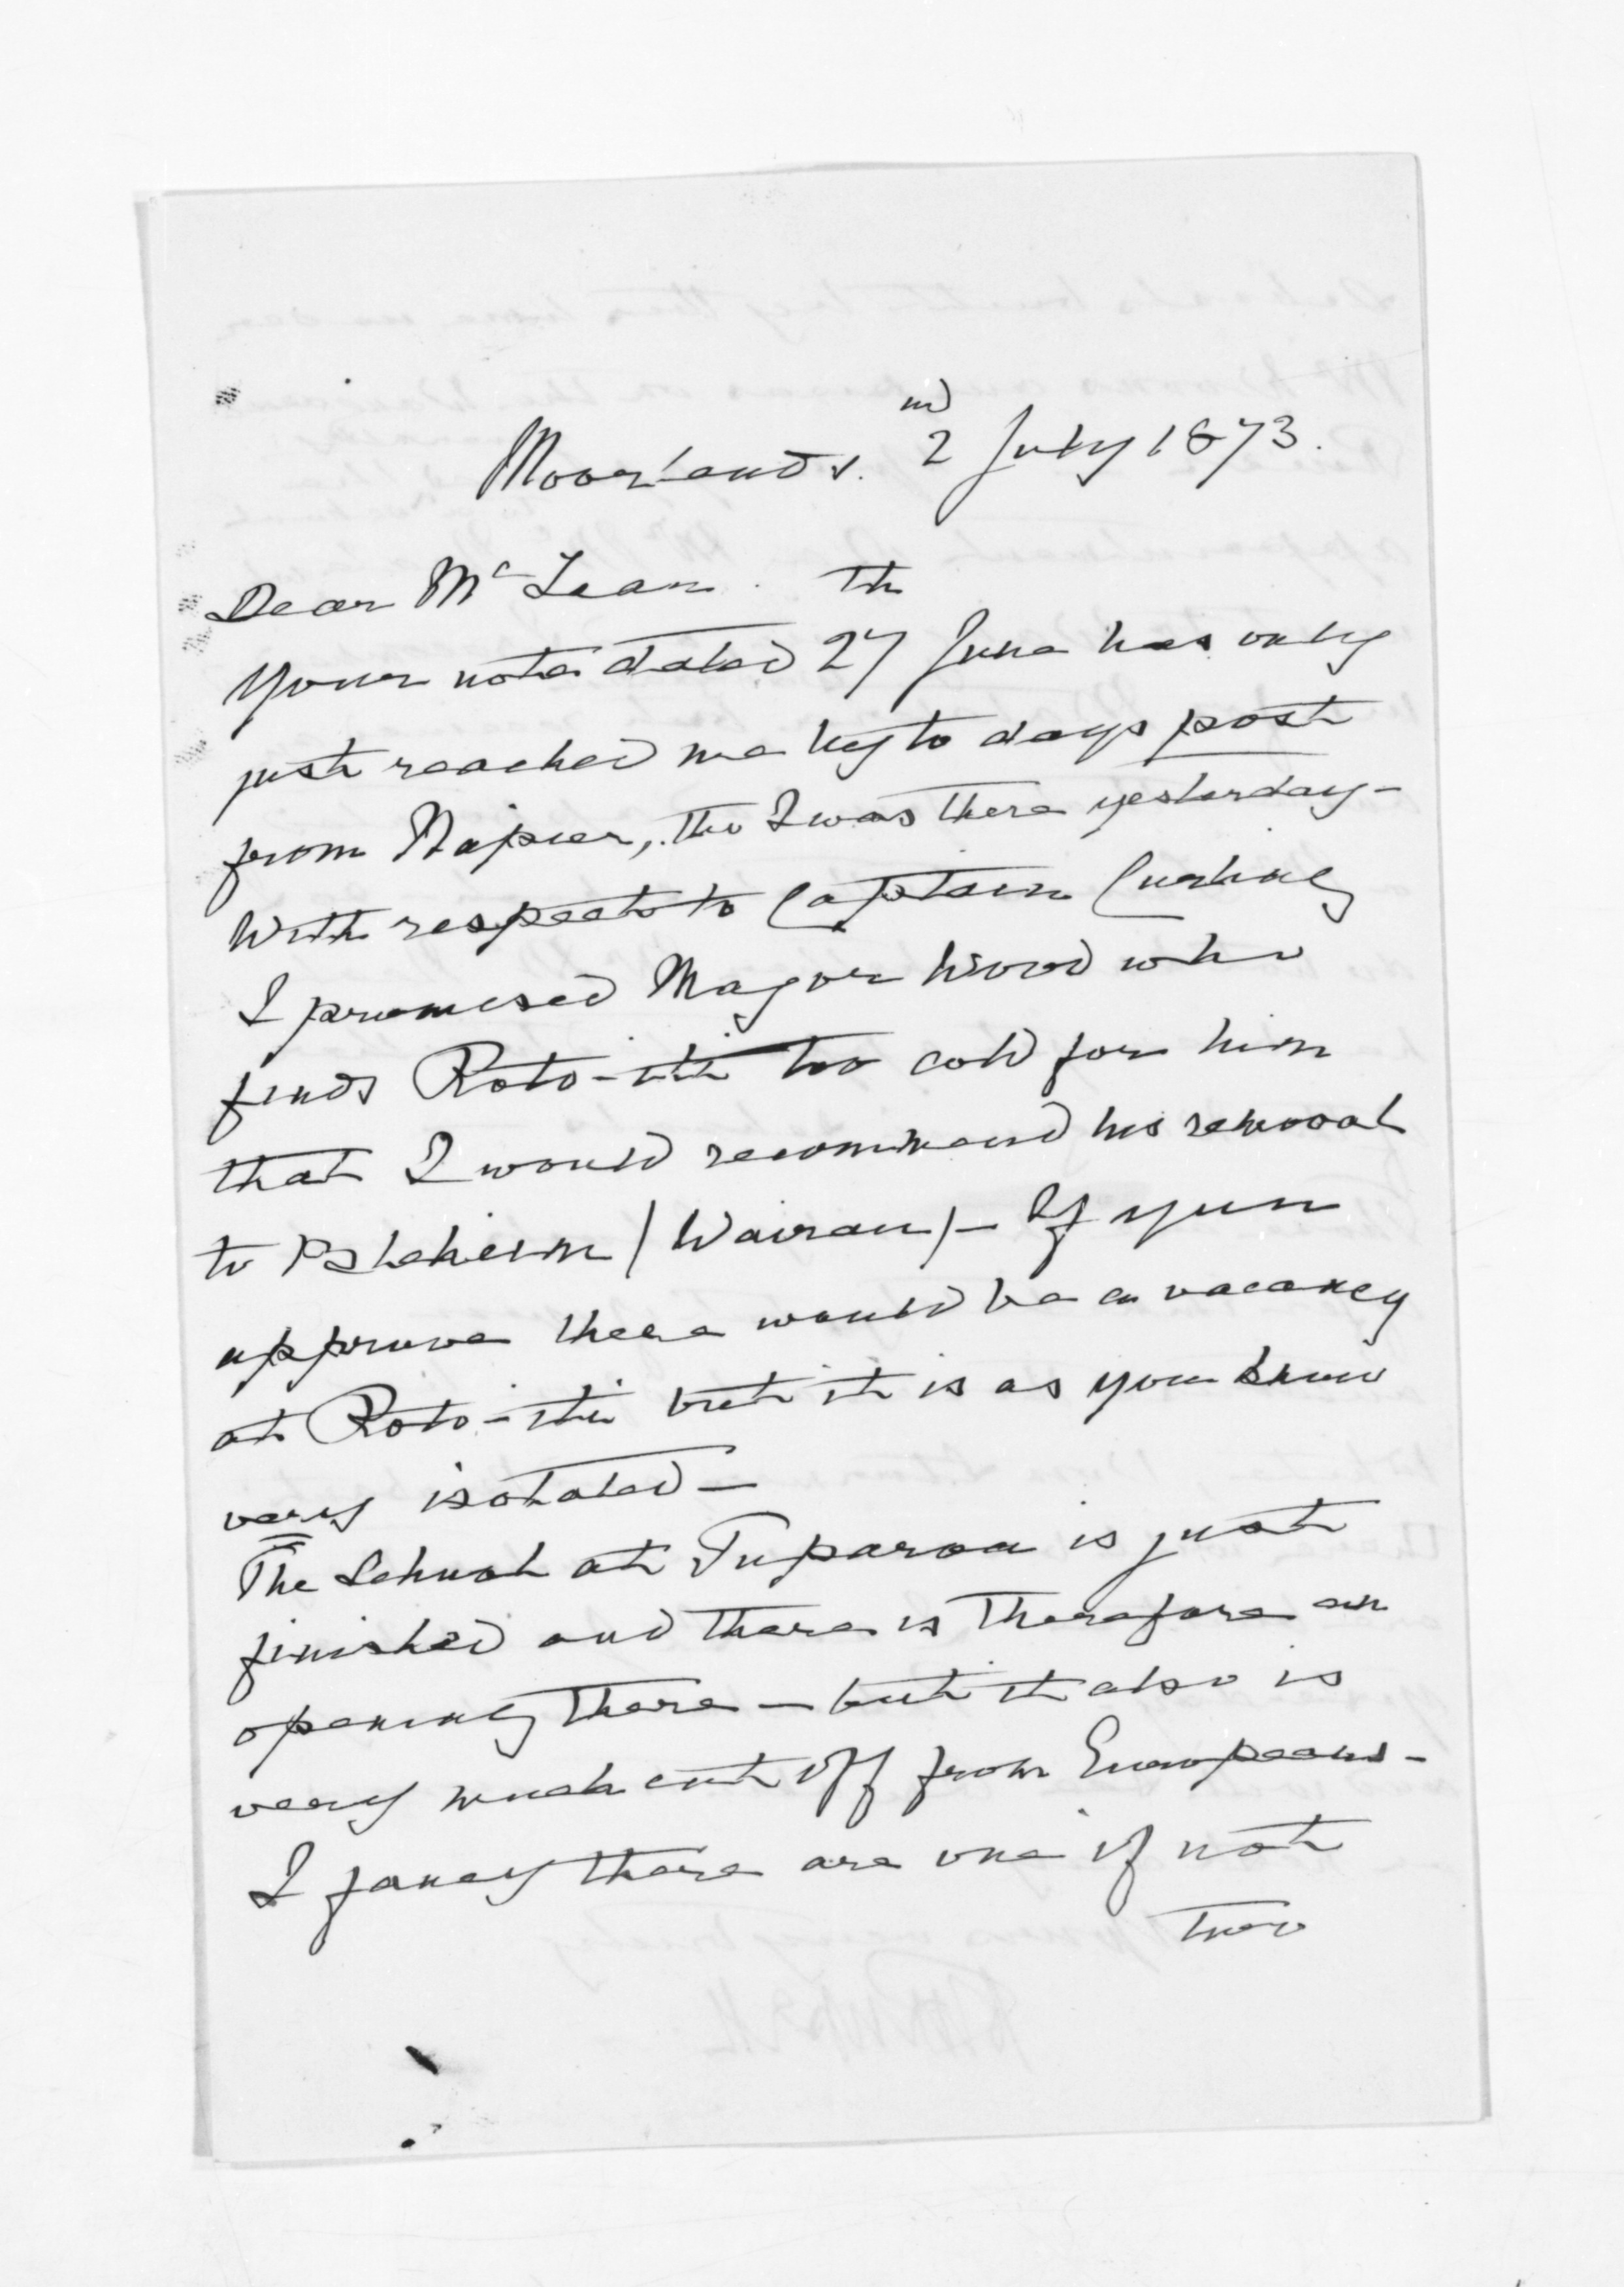 Moorlands. 2nd July 1873.
Dear McLean.
Your note dated 27th June has only
just reached me by to days post
from Napier, tho I was there yesterday –
With respect to Captain Curling
I promised Major Wood who
finds Roto-iti too cold for him
that I would recommend his removal
to Bleheim (Wairau) – If you
approve there would be a vacancy
at Roto-iti but it is as you know
very isolated –
The School at Tuparoa is just
finished and there is therefore an
opening there – but it also is
very much cut off from Europeans –
I fancy there are one if not
two